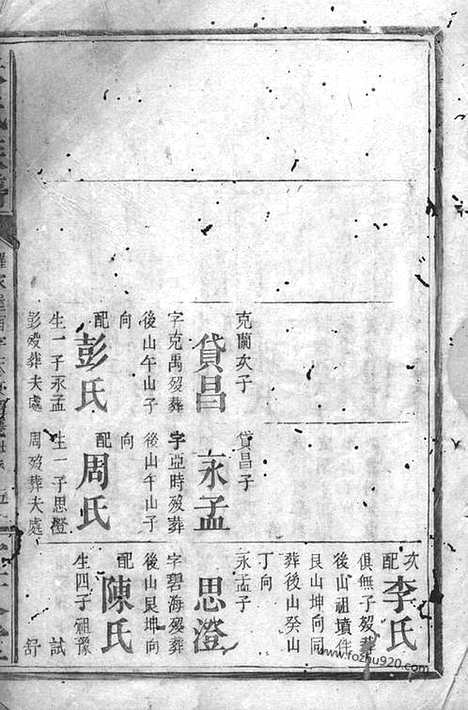 克蘭次子
貸昌
字克禹歿葬
後山午山子
向
配彭氏
生一子永孟
彭歿葬夫處
貸昌子
永孟
字亞時歿葬
後山午山子
向
配周氏
生一子思澄
周歿葬夫處
次
配李氏
俱無子歿葬
後山祖墳件
艮山坤向同
葬後山癸山
丁向
永孟子
思澄
字碧海歿葬
後山艮坤向
配陳氏
生四子祖豫
試
舒
www.fozhu920.com